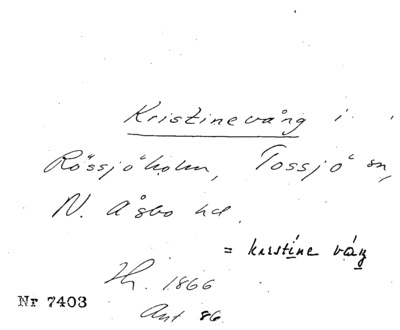 Kristinevång i
Rössjöholm, Tossjö sn,
N. Åsbo hd.
= kristine váŋ
Th. 1866
Ant 86
Nr 7403